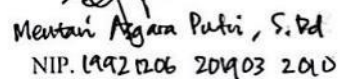 Mentari Asgara Putri, S.Pd
NIP. 19921206 201903 2010